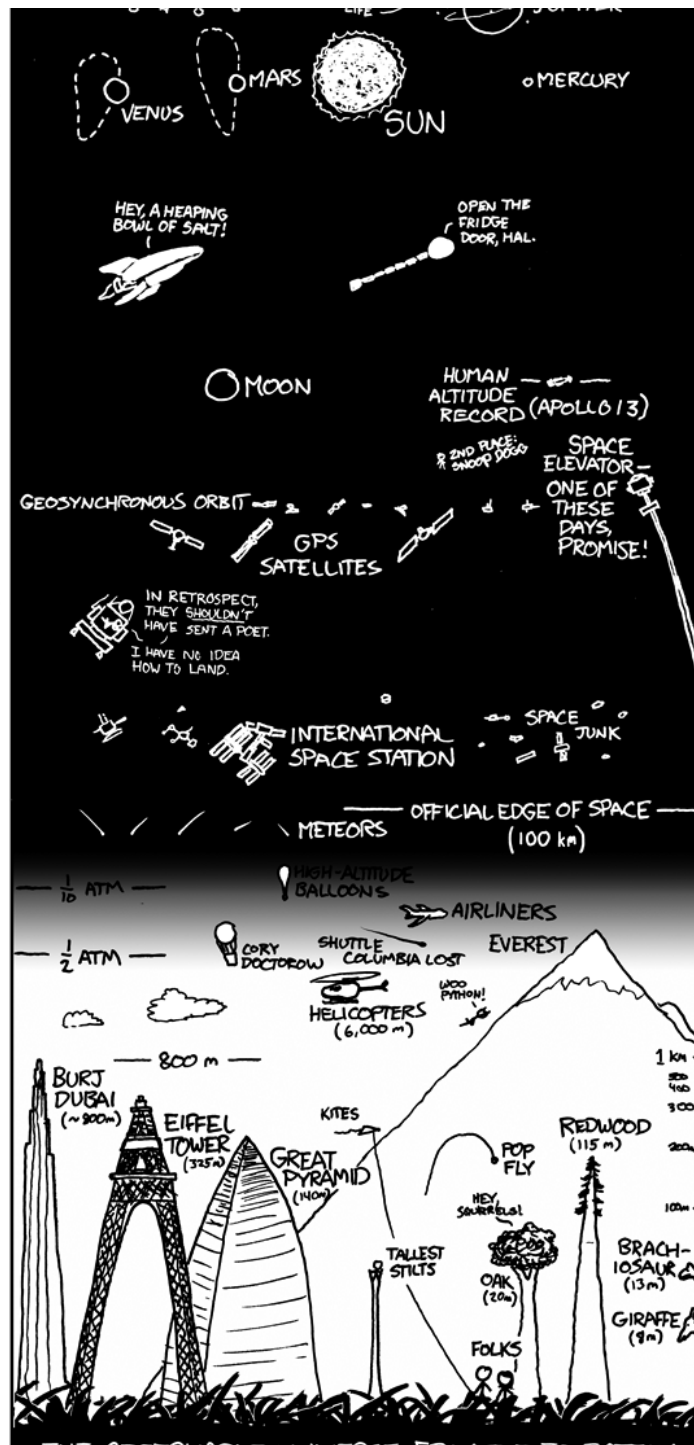 LIFE
JUPITER
VENUS
MARS
SUN
MERCURY
HEY, A HEAPING
BOWL OF SALT!
OPEN THE
FRIDGE
DOOR, HAL.
MOON
HUMAN
ALTITUDE
RECORD (APOLLO 13)
2ND PLACE:
SNOOP DOGG
SPACE
ELEVATOR—
ONE OF
THESE
DAYS,
PROMISE!
GEOSYNCHRONOUS ORBIT
GPS
SATELLITES
IN RETROSPECT,
THEY SHOULDN'T
HAVE SENT A POET.
I HAVE NO IDEA
HOW TO LAND.
INTERNATIONAL
SPACE STATION
SPACE
JUNK
METEORS
OFFICIAL EDGE OF SPACE
(100 km)
1/10 ATM
HIGH-ALTITUDE
BALLOONS
AIRLINERS
1/2 ATM
CORY
DOCTOROW
SHUTTLE
COLUMBIA LOST
EVEREST
HELICOPTERS
(6,000 m)
WOO
PYTHON!
800 m
1 KM
500
400
300
200m
100m
BURJ
DUBAI
(~800m)
EIFFEL
TOWER
(325m)
GREAT
PYRAMID
(140m)
KITES
POP
FLY
REDWOOD
(115 m)
HEY,
SQUIRRELS!
TALLEST
STILTS
OAK
(20m)
BRACH-
IOSAUR
(13m)
GIRAFFE
(8m)
FOLKS